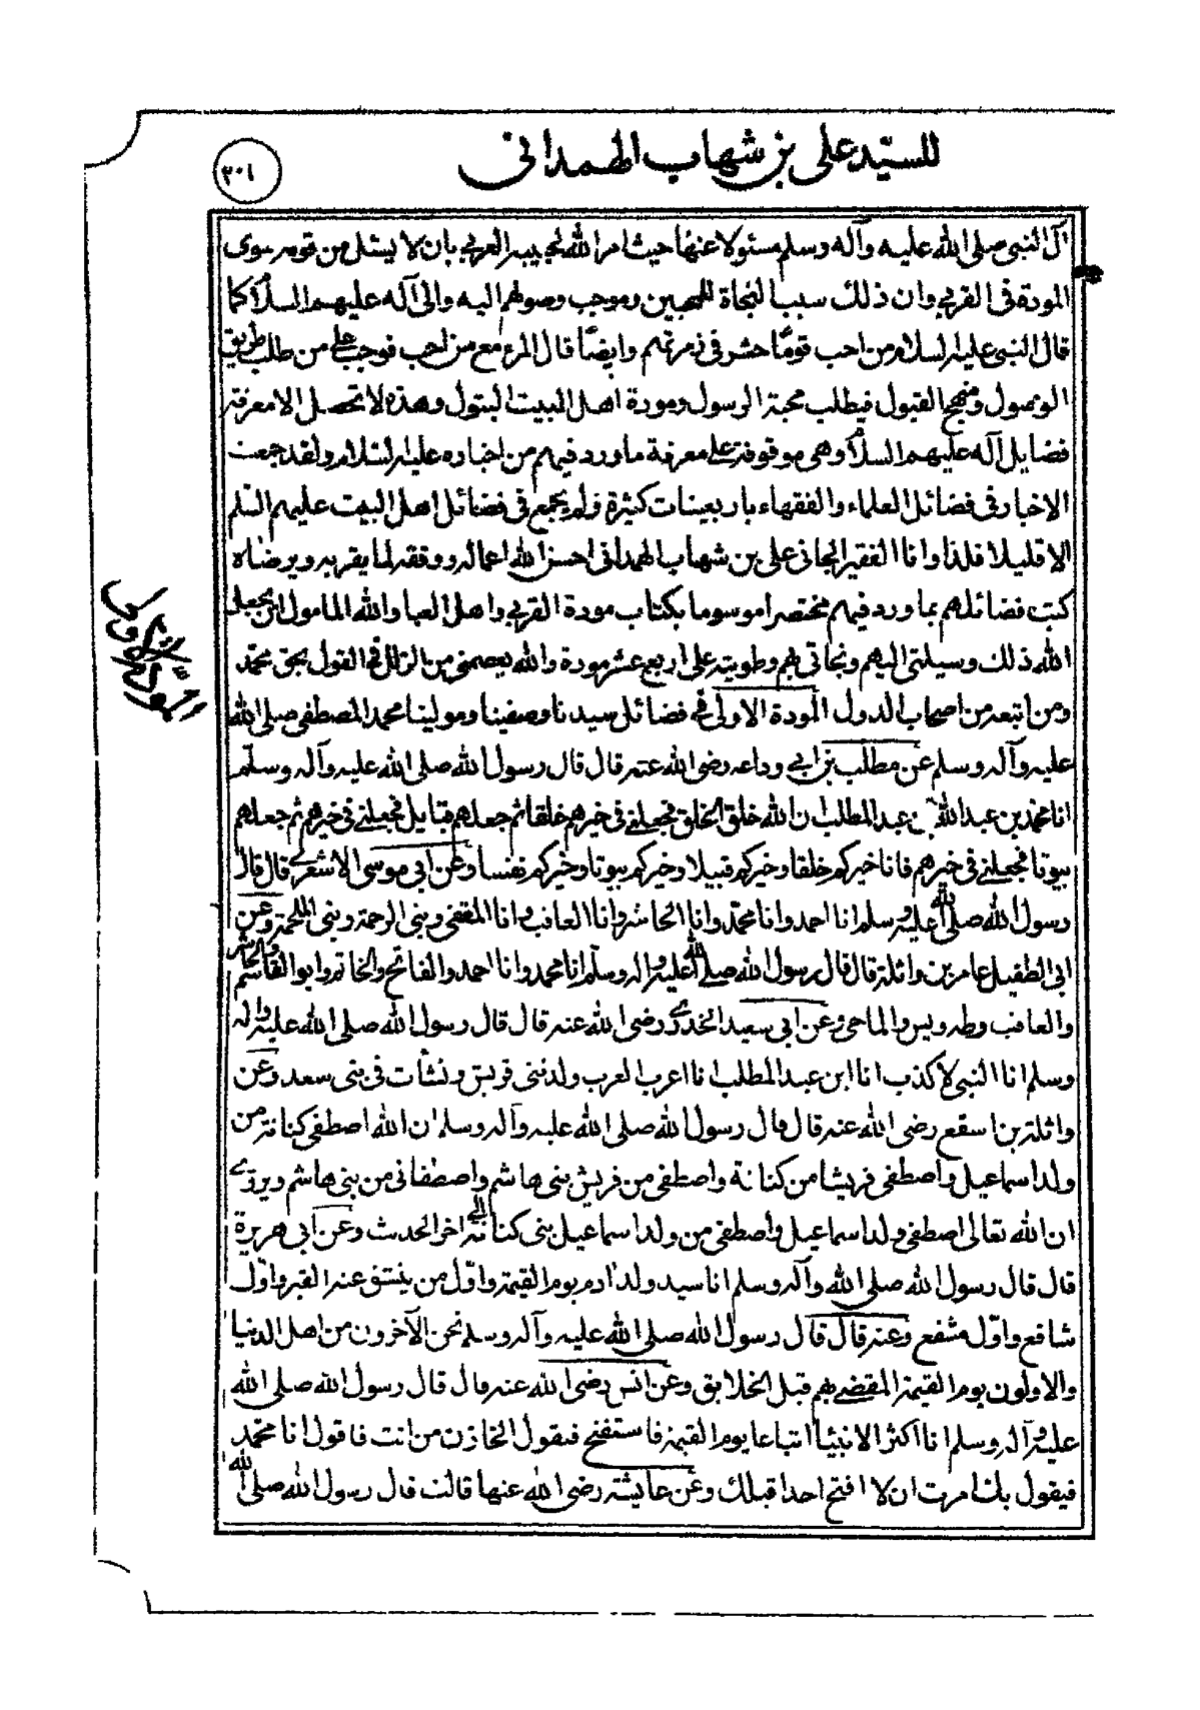 للسيّد علي بن شهاب الهمداني
٢٠١
آل النبي صلى الله عليه وآله وسلم مسئولا عنها حيث امر الله لحبيبه العربي بان لا يسئل من قومه سوى
المودة في القربى وان ذلك سبب النجاة للمحبين وموجب وصولهم اليه والى آله عليهم السلام كما
قال النبي عليه السلام من احب قومًا حشر في زمرتهم وايضًا قال المرء مع من احب فوجب على من طلب طريق
الوصول ومنهج القبول فيطلب محبة الرسول ومودة اهل البيت البتول وهذه لا تحصل الا معرفة
فضايل آله عليهم السلام وهي موقوفة على معرفة ما ورد فيهم من اخباره عليه السلام ولقد جمعت
الاخبار في فضائل العلماء والفقهاء باربعينات كثيرة ولم يجمع في فضائل اهل البيت عليهم السلم
الا قليلا فلذا وانا الفقير الجاني علي بن شهاب الهمداني احسن الله اعماله ووفقه لما يقربه ويرضاه
كتبت فضائلهم بما ورد فيهم مختصرا موسوما بكتاب مودة القربى واهل العبا والله المامول ان يجعل
الله ذلك وسيلتي اليهم ونجاتي بهم وطويته على اربع عشر مودة والله يعصمني من الزلل في القول بحق محمد
ومن اتبعه من اصحاب الدول المودة الاولى في فضائل سيدنا وصفينا ومولينا محمد المصطفى صلى الله
عليه وآله وسلم عن مطلب بن ابي وداعه رضى الله عنه قال قال رسول الله صلى الله عليه وآله وسلّم
انا محمد بن عبد الله بن عبد المطلب ان الله خلق الخلق فجعلني في خيرهم خلقا ثم جعلهم قبايل فجعلني في خيرهم ثم جعلهم
بيوتا فجعلني في خيرهم فانا خيركم خلقا وخيركم قبيلا وخيركم بيوتا وخيركم نفسا وعن ابي موسى الاشعري قال قال
رسول الله صلى الله عليه وسلم انا احمد وانا محمّد وانا الحاشر وانا العاقب وانا المقفي ونبي الرحمة ونبي الملحمة وعن
ابي الطفيل عامر بن واثلة قال قال رسول الله صلى الله عليه واله وسلّم انا محمد وانا احمد والفاتح والخاتم وابو القاسم والحاشر
والعاقب وطه ويس والماحي وعن ابي سعيد الخدري رضى الله عنه قال قال رسول الله صلى الله عليه واله
وسلم انا النبي لا كذب انا ابن عبد المطلب انا اعرب العرب ولدتني قريش ونشأت في بني سعد وعن
واثلة بن اسقع رضى الله عنه قال قال رسول الله صلى الله عليه وآله وسلم ان الله اصطفى كنانة من
ولد اسماعيل واصطفى قريشا من كنانة واصطفى من قريش بني هاشم واصطفاني من بني هاشم ويروى
ان الله تعالى اصطفى ولد اسماعيل واصطفى من ولد اسماعيل بني كنانة الى اخر الحدث وعن ابي هريرة
قال قال رسول الله صلى الله وآله وسلم انا سيد ولد ادم يوم القيمة واوّل من ينشق عنه القبر واوّل
شافع واوّل مشفع وعنه قال قال رسول الله صلى الله عليه وآله وسلم نحن الآخرون من اهل الدنيا
والاولون يوم القيمة المقضى بهم قبل الخلايق وعن انس رضى الله عنه قال قال رسول الله صلى الله
عليه وآله وسلم انا اكثر الانبيا اتباعا يوم القيمة فاستفتح فيقول الخازن من انت فاقول انا محمّد
فيقول بك امرت ان لا افتح احدا قبلك وعن عايشة رضى الله عنها قالت قال رسول الله صلى الله
المودة الاولى